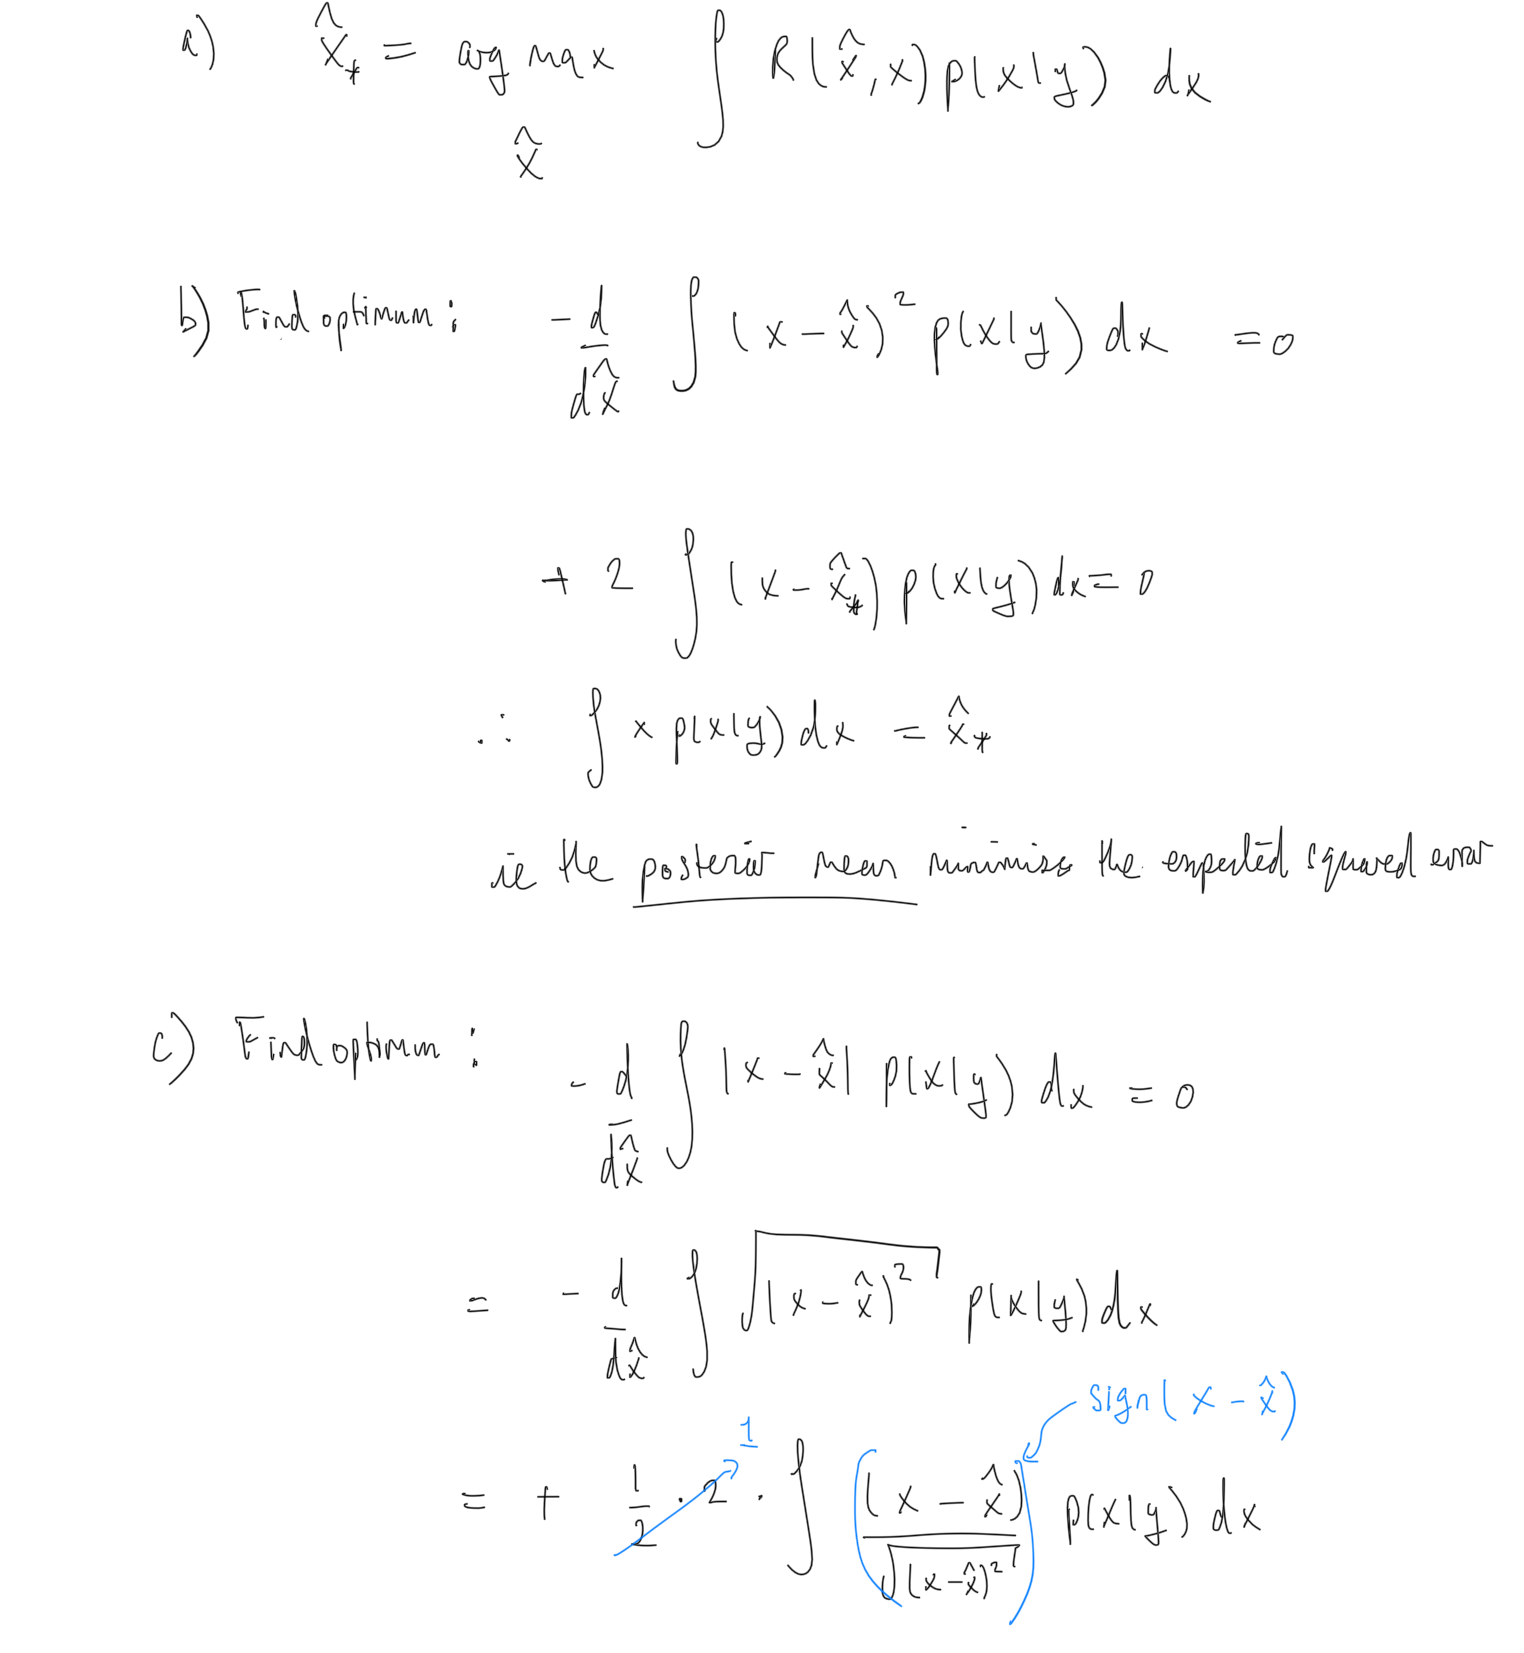 a) x̂* = arg max ∫ R(x̂, x) p(x|y) dx
x̂
b) Find optimum: -d/dx̂ ∫ (x - x̂)² p(x|y) dx = 0
+ 2 ∫ (x - x̂*) p(x|y) dx = 0
∴ ∫ x p(x|y) dx = x̂*
ie the posterior mean minimises the expected squared error
c) Find optimum: - d/dx̂ ∫ |x - x̂| p(x|y) dx = 0
= - d/dx̂ ∫ √(x - x̂)² p(x|y) dx
sign(x - x̂)
1
= + 1/2 · 2 · ∫ ((x - x̂)/√(x - x̂)²) p(x|y) dx